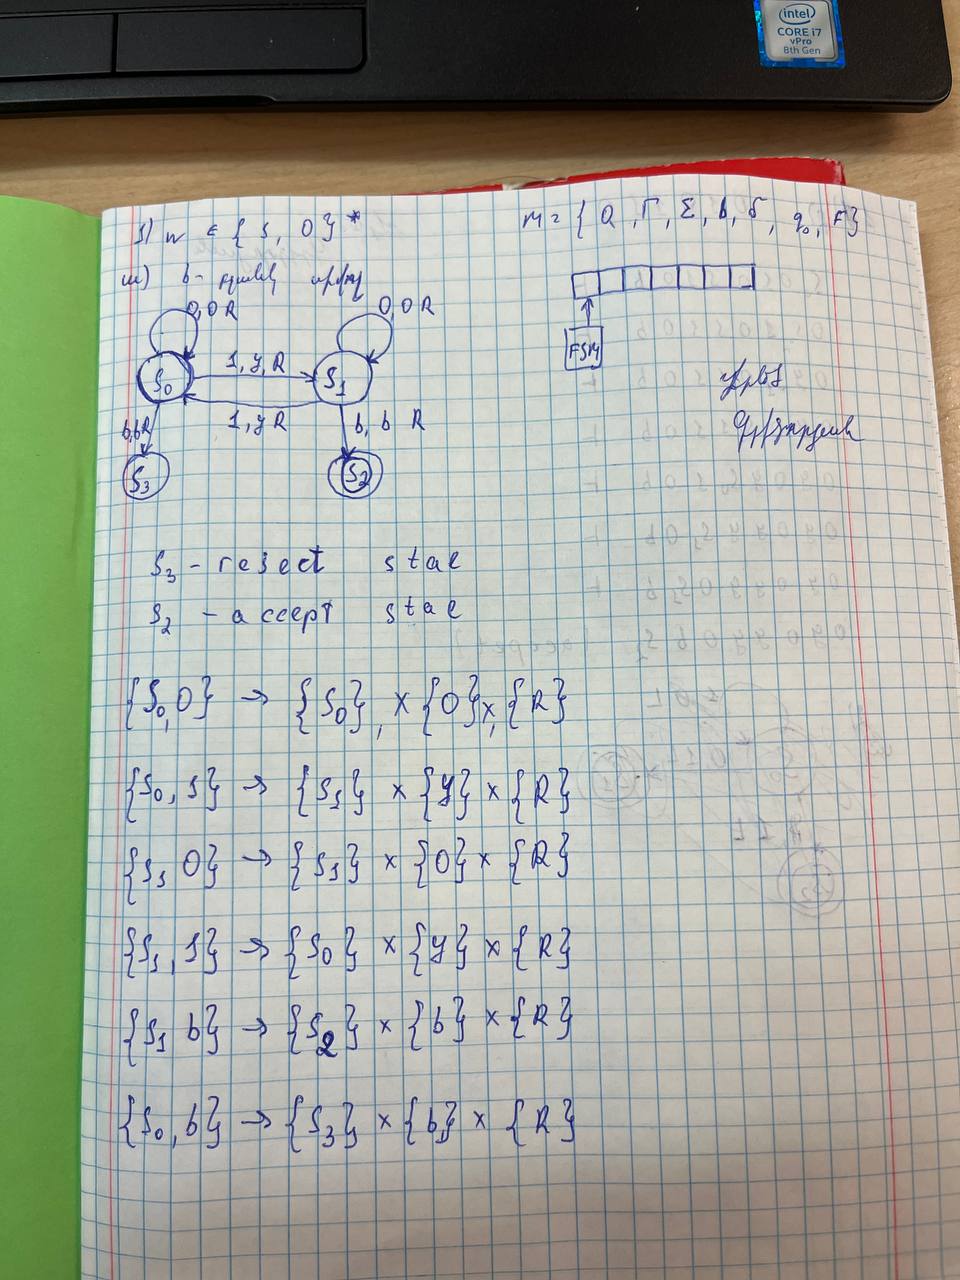 intel
CORE i7
vPro
8th Gen
1) w ∈ {1, 0}*
M = {Q, Γ, Σ, b, δ, q0, F}
b-
0,0 R
0,0 R
S0
1, y, R
S1
1, y R
b, b R
b, b R
S3
S2
FSM
S3 - reject stae
S2 - accept stae
{S0, 0} → {S0}, × {0} ×, {R}
{S0, 1} → {S1} × {y} × {R}
{S1 0} → {S1} × {0} × {R}
{S1, 1} → {S0} × {y} × {R}
{S1 b} → {S2} × {b} × {R}
{S0, b} → {S3} × {b} × {R}